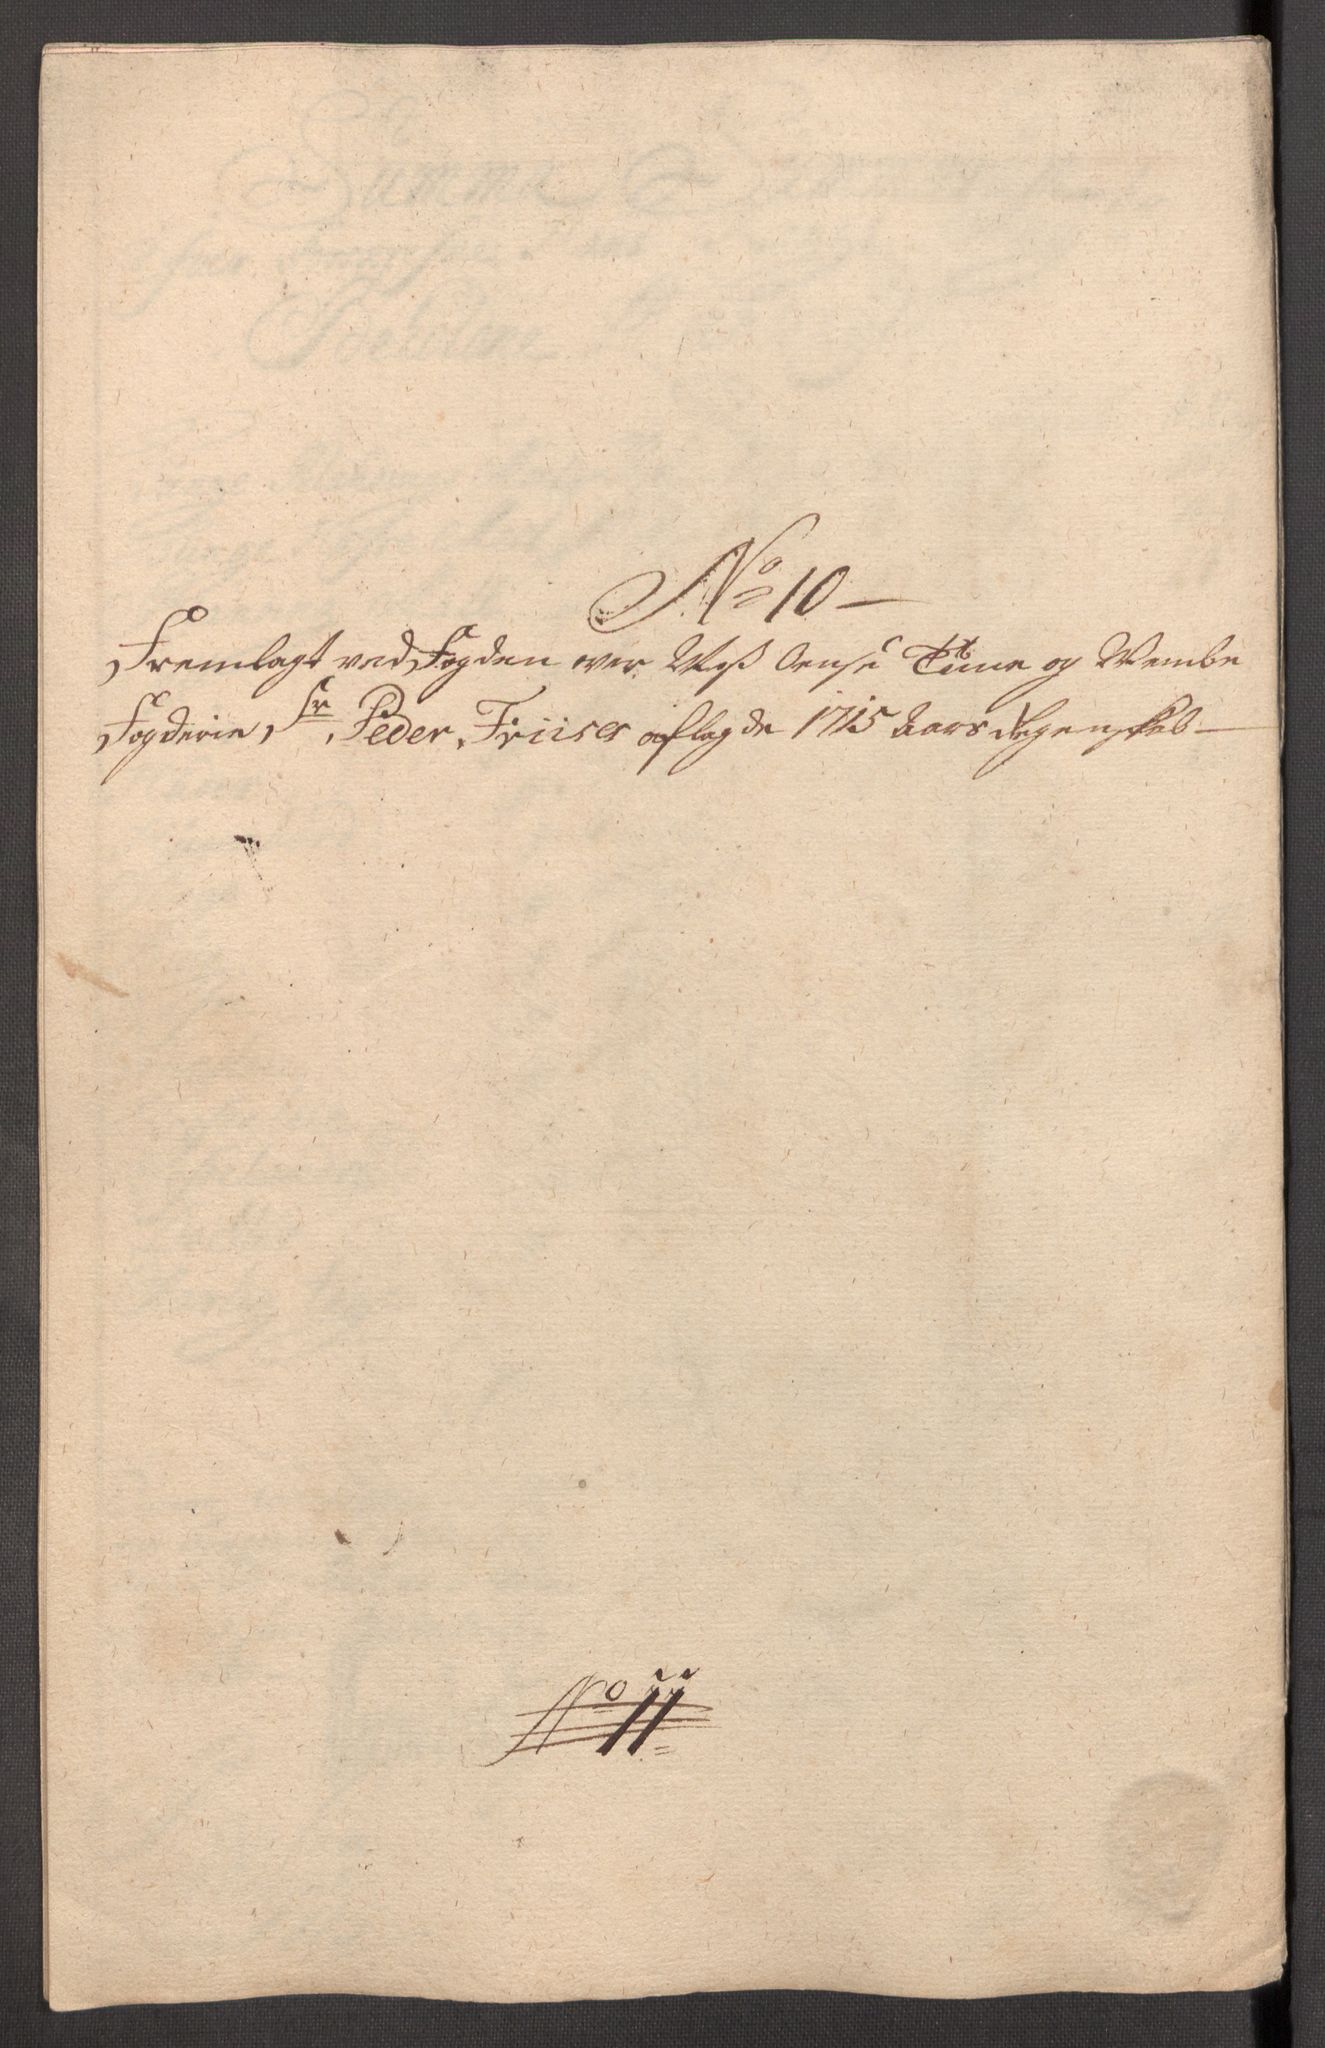 No 10
Fremlagt ved Fogden over Moss Aensø Tune og Wembe
Fogderie Sr. Peder Friises aflagde 1715 Aars Regenskab
No 11